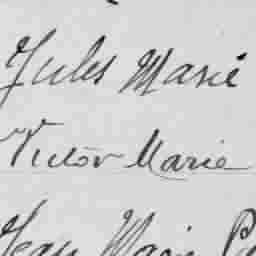 Jules Marie
Victor Marie
Jean Marie